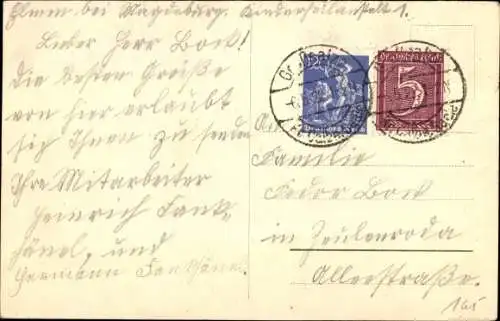 Elmen bei Magdeburg. Kinderheilanstalt 1.
Lieber Herr Bock!
Die besten Grüße
von hier erlaubt
sig Ihnen zu senden
Ihre Mitarbeiter
Heinrich Fank-
hänel, und
Hermann Fankhänel.
120
5
Deutsches Reich
An
Familie
Fedor Bock
in Zeulenroda
Allerstraße.
165